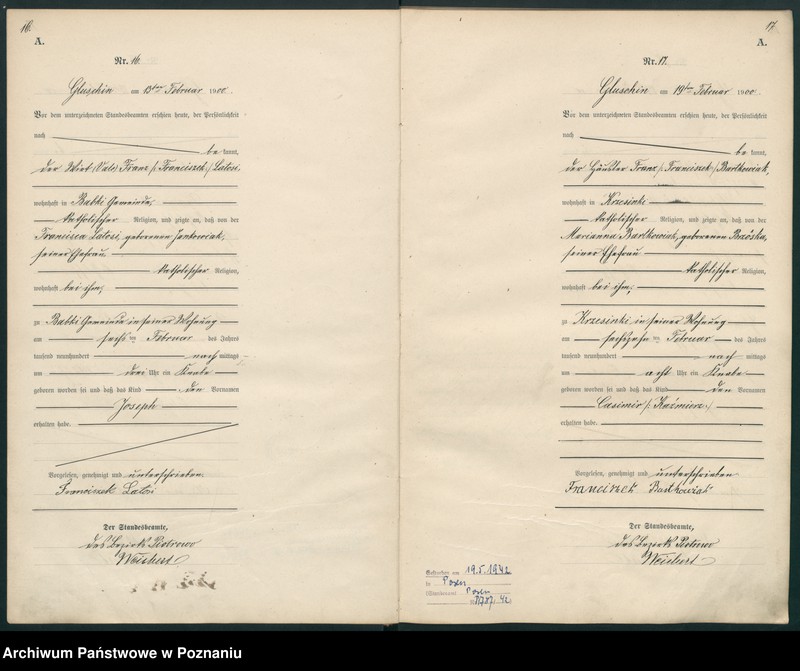 16.
A.
Nr. 16.
Gluschin am 13ten Februar 1900.
Vor dem unterzeichneten Standesbeamten erschien heute, der Persönlichkeit
nach
be kannt,
der Wirt Franz /: Franciszek :/ Latosi,
wohnhaft in Babki Gemeinde,
katholischer Religion, und zeigte an, daß von der
Francisca Latosi, geborenen Jankowiak,
seiner Ehefrau
katholischer Religion,
wohnhaft bei ihm,
zu Babki Gemeinde in seiner Wohnung
am sechs ten Februar des Jahres
tausend neunhundert nach mittags
um drei Uhr ein Knabe
geboren worden sei und daß das Kind den Vornamen
Joseph
erhalten habe.
Vorgelesen, genehmigt und unterschrieben.
Franciszek Latosi
Der Standesbeamte,
des Bezirks Piotrowo
Weichert
17.
A.
Nr. 17.
Gluschin am 19ten Februar 1900.
Vor dem unterzeichneten Standesbeamten erschien heute, der Persönlichkeit
nach
be kannt,
der Häusler Franz /: Franciszek :/ Bartkowiak,
wohnhaft in Krzesinki
katholischer Religion, und zeigte an, daß von der
Marianna Bartkowiak, geborenen Brzóska,
seiner Ehefrau
katholischer Religion,
wohnhaft bei ihm,
zu Krzesinki in seiner Wohnung
am sechszehn ten Februar des Jahres
tausend neunhundert nach mittags
um acht Uhr ein Knabe
geboren worden sei und daß das Kind den Vornamen
Casimir /: Kaźmierz :/
erhalten habe.
Vorgelesen, genehmigt und unterschrieben
Franciszek Bartkowiak
Der Standesbeamte,
des Bezirks Piotrowo
Weichert
Gestorben am 19.5.1942
in Posen
Standesamt Posen
Archiwum Państwowe w Poznaniu